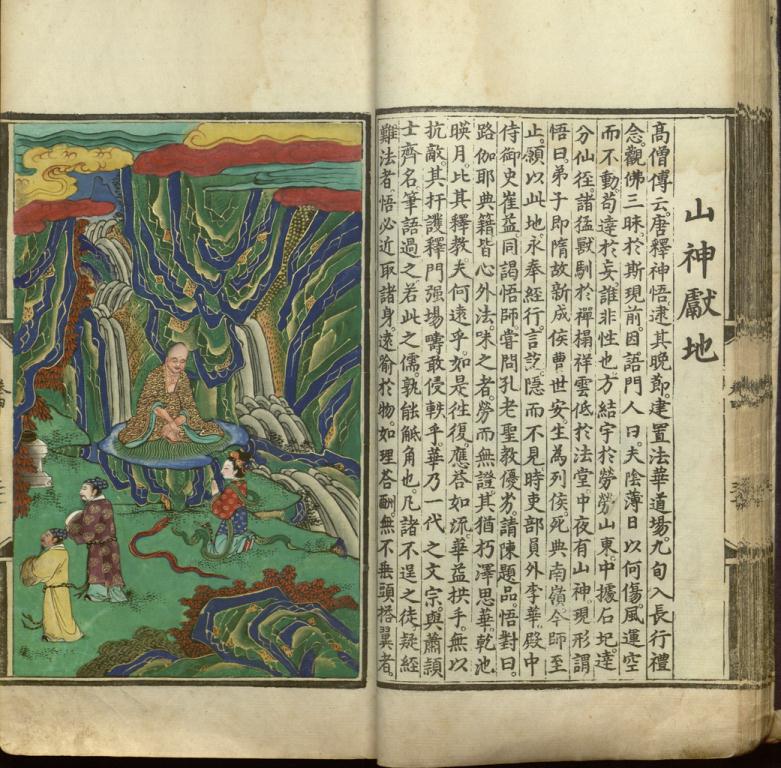 山神獻地
高僧傳云。唐釋神悟。逮其晚節。建置法華道場。九旬入長行禮
念。觀佛三昧。於斯現前。因語門人曰。夫陰薄日以何傷。風運空
而不動。苟達於妄。誰非性也。方結宇於勞勞山東。中據石圯。達
分仙徑。諸猛獸馴於禪榻。祥雲低於法堂。中夜有山神。現形謂
悟曰。弟子即隋故新成侯曹世安。生為列侯。死典南嶺。今師至
止。願以此地。永奉經行。言訖。隱而不見。時吏部員外李華。殿中
侍御史崔益。同謁悟師。嘗問孔老聖教優劣。請陳題品。悟對曰。
路伽耶典籍。皆心外法。味之者。勞而無證。其猶朽澤思華。乾池
暎月。比其釋教。夫何遠乎。如是往復。應答如流。華益拱手。無以
抗敵。其扞護釋門。强場疇敢侵軼乎。華乃一代之文宗。與蕭頴
士齊名。筆語過之。若此之儒。孰能觝角也。凡諸不逞之徒。疑經
難法者。悟必近取諸身。遠喻於物。如理答酬。無不垂頭搭翼者。